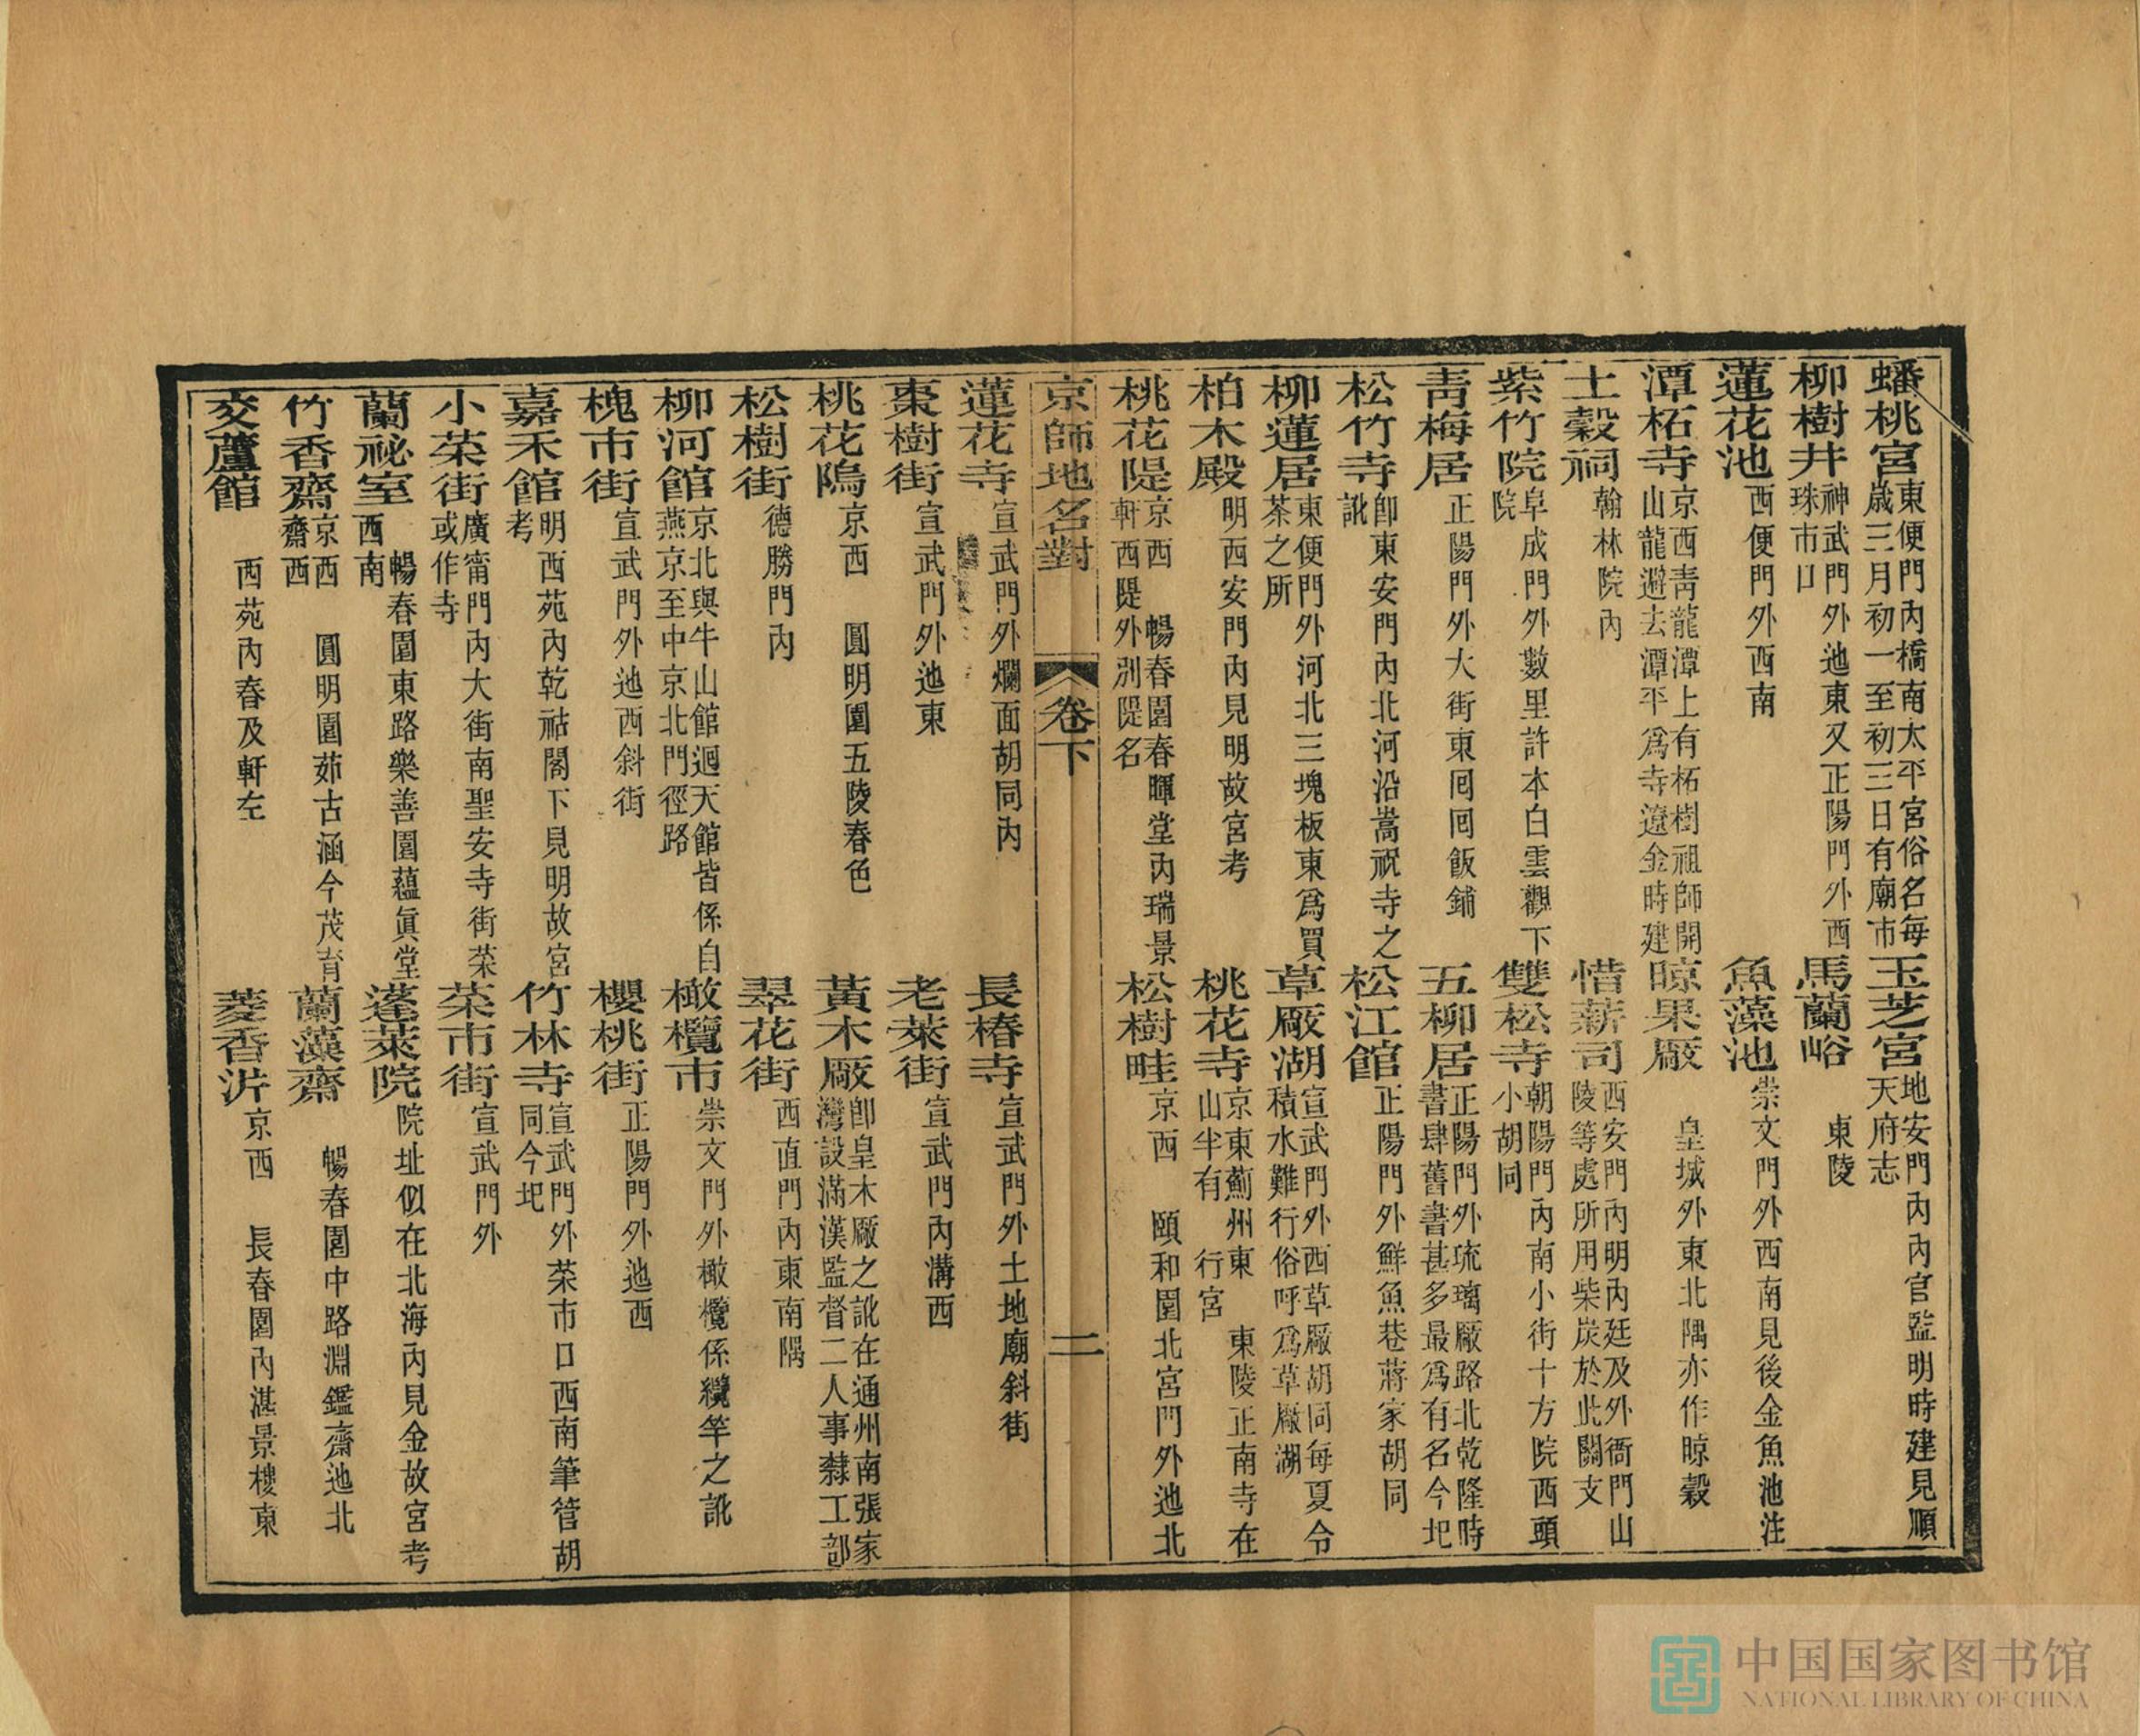 蟠桃宮東便門內橋南太平宮俗名每歲三月初一至初三日有廟市 玉芝宮地安門內內官監明時建見順天府志
柳樹井神武門外迤東又正陽門外西珠市口 馬蘭峪東陵
蓮花池西便門外西南 魚藻池崇文門外西南見後金魚池注
潭柘寺京西靑龍潭上有柘樹祖師開山龍避去潭平爲寺遼金時建 晾果厰皇城外東北隅亦作晾穀
土穀祠翰林院內 惜薪司西安門內明內廷及外衙門山陵等處所用柴炭於此關支
紫竹院阜成門外數里許本白雲觀下院 雙松寺朝陽門內南小街十方院西頭小胡同
靑梅居正陽門外大街東囘囘飯鋪 五柳居正陽門外琉璃厰路北乾隆時書肆舊書甚多最爲有名今圯
松竹寺卽東安門內北河沿嵩祝寺之訛 松江館正陽門外鮮魚巷蔣家胡同
柳蓮居東便門外河北三塊板東爲買茶之所 草厰湖宣武門外西草厰胡同每夏令積水難行俗呼爲草厰湖
柏木殿明西安門內見明故宮考 桃花寺京東薊州東 東陵正南寺在山半有 行宮
桃花隄京西 暢春園春暉堂內瑞景軒西隄外別隄名 松樹畦京西 頤和園北宮門外迤北
京師地名對 卷下 二
蓮花寺宣武門外爛面胡同內 長椿寺宣武門外土地廟斜街
棗樹街宣武門外迤東 老萊街宣武門內溝西
桃花隖京西 圓明園五陵春色 黃木厰卽皇木厰之訛在通州南張家灣設滿漢監督二人事隸工部
松樹街德勝門內 翠花街西直門內東南隅
柳河館京北與牛山館迴天館皆係自燕京至中京北門徑路 橄欖市崇文門外橄欖係纜竿之訛
槐市街宣武門外迤西斜街 櫻桃街正陽門外迤西
嘉禾館明西苑內乾祐閣下見明故宮考 竹林寺宣武門外菜市口西南筆管胡同今圯
小菜街廣甯門內大街南聖安寺街菜或作寺 菜市街宣武門外
蘭祕室 暢春園東路樂善園蘊眞堂西南 蓬萊院院址似在北海內見金故宮考
竹香齋京西 圓明園茹古涵今茂育齋西 蘭藻齋 暢春園中路淵鑑齋迤北
交蘆館 西苑內春及軒左 菱香沜京西 長春園內湛景樓東
中国国家图书馆
NATIONAL LIBRARY OF CHINA